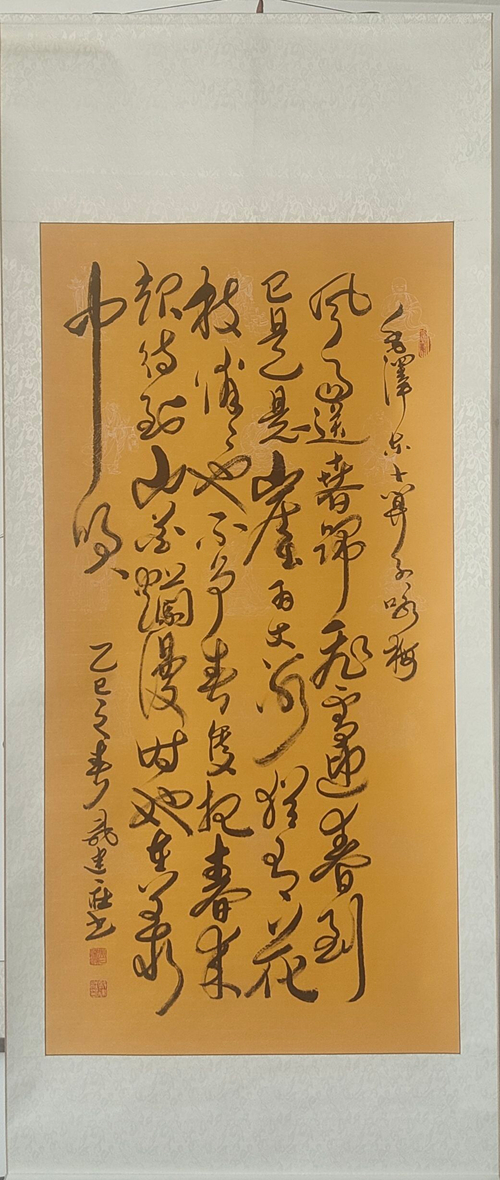 毛澤东卜算子咏梅
风雨送春歸飛雪迎春到
已是悬崖百丈冰猶有花
枝俏々也不争春隻把春来
报待到山花爛漫时她在叢
中笑
乙巳之春建書